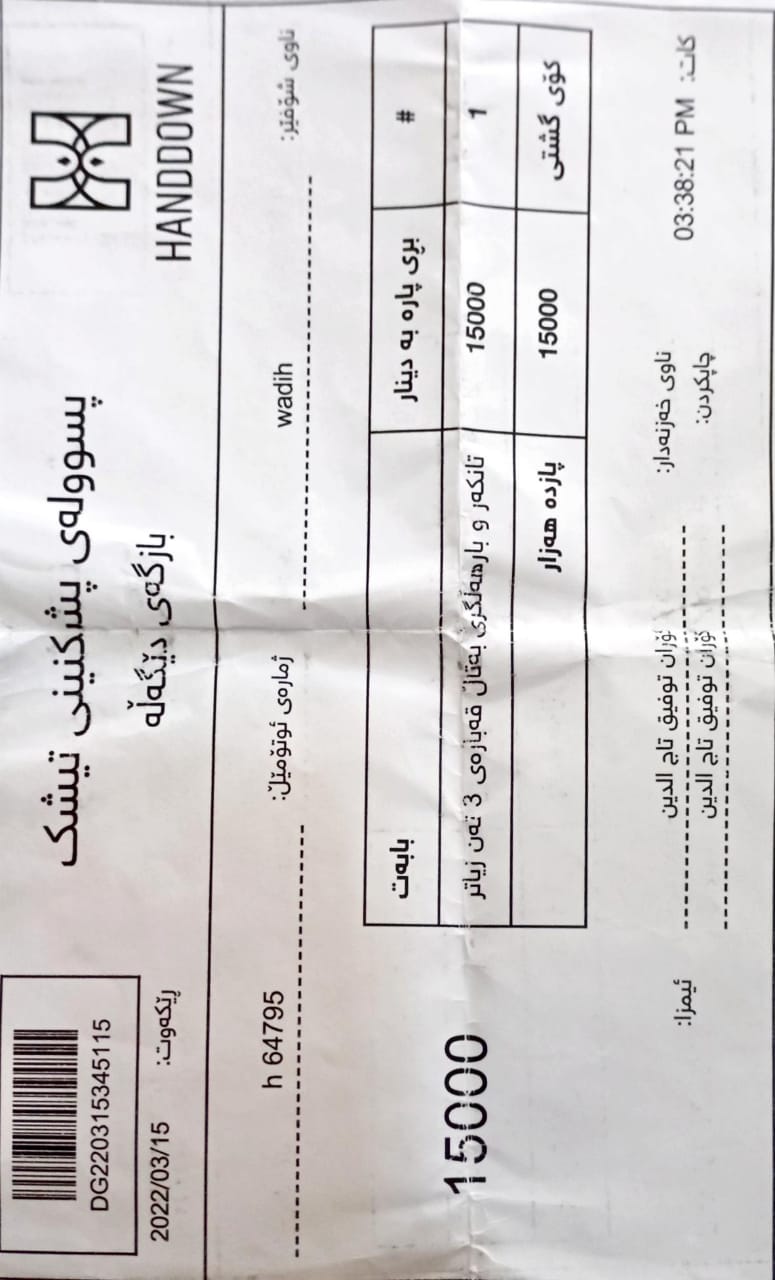 HANDDOWN
پسوولەی پشکنینی تیشک
بازگەی دێگەڵە
DG220315345115
ڕێکەوت: 2022/03/15
ناوی شۆفێر: wadih
ژمارەی ئوتۆمبێل: h 64795
# بڕی پارە بە دینار بابەت
1 15000 تانکەر و بارهەڵگری بەتاڵ قەبارەی 3 تەن زیاتر
کۆی گشتی 15000 پازدە هەزار
15000
کات: 03:38:21 PM
ناوی خەزنەدار: ۆران توفیق تاج الدین
ئیمزا:
چاپکردن: ۆران توفیق تاج الدین